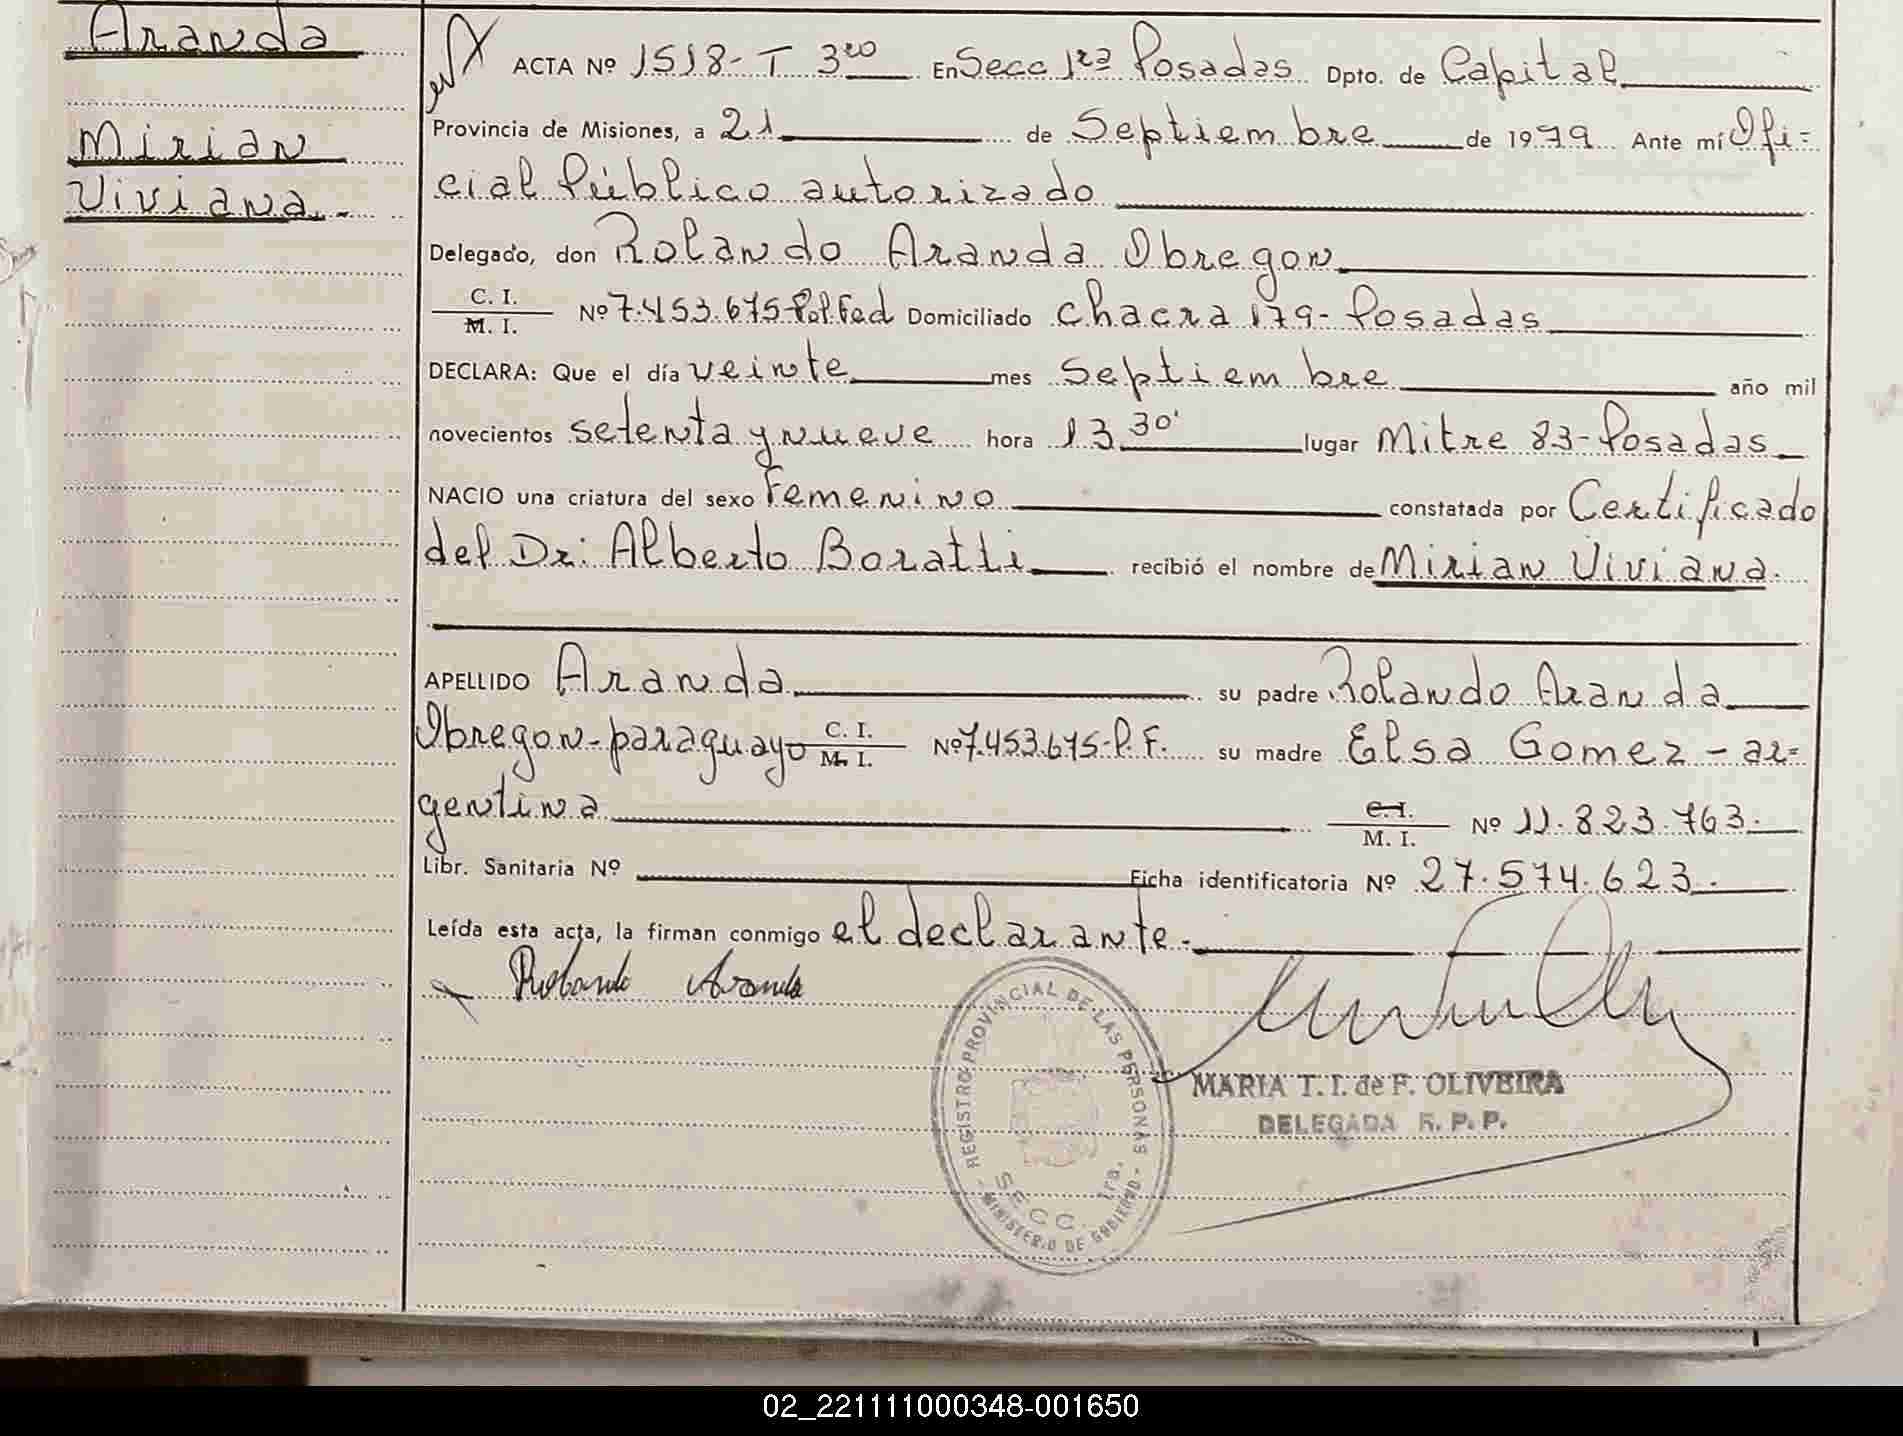 Aranda
Mirian
Viviana.-
ACTA Nº 1518- T 3ro En Secc 1ra Posadas Dpto. de Capital
Provincia de Misiones, a 21 de Septiembre de 1979 Ante mí Ofi=
cial Público autorizado
Delegado, don Rolando Aranda Obregon
C. I.
M. I. Nº 7.453.675-Pol.Fed Domiciliado Chacra 179- Posadas
DECLARA: Que el día veinte mes Septiembre año mil
novecientos setenta y nueve hora 13 30' lugar Mitre 83- Posadas
NACIO una criatura del sexo Femenino constatada por Certificado
del Dr: Alberto Boratti recibió el nombre de Mirian Viviana.
APELLIDO Aranda su padre Rolando Aranda
Obregon-paraguayo C. I.
M. I. Nº 7.453.675-P.F. su madre Elsa Gomez - ar=
gentina C. I.
M. I. Nº 11.823.763.
Libr. Sanitaria Nº Ficha identificatoria Nº 27.574.623.
Leída esta acta, la firman conmigo el declarante.-
Rolando Aranda
REGISTRO PROVINCIAL DE LAS PERSONAS
SECC. 1ra.
- MINISTERIO DE GOBIERNO -
MARIA T. I. de F. OLIVEIRA
DELEGADA R. P. P.
02_221111000348-001650